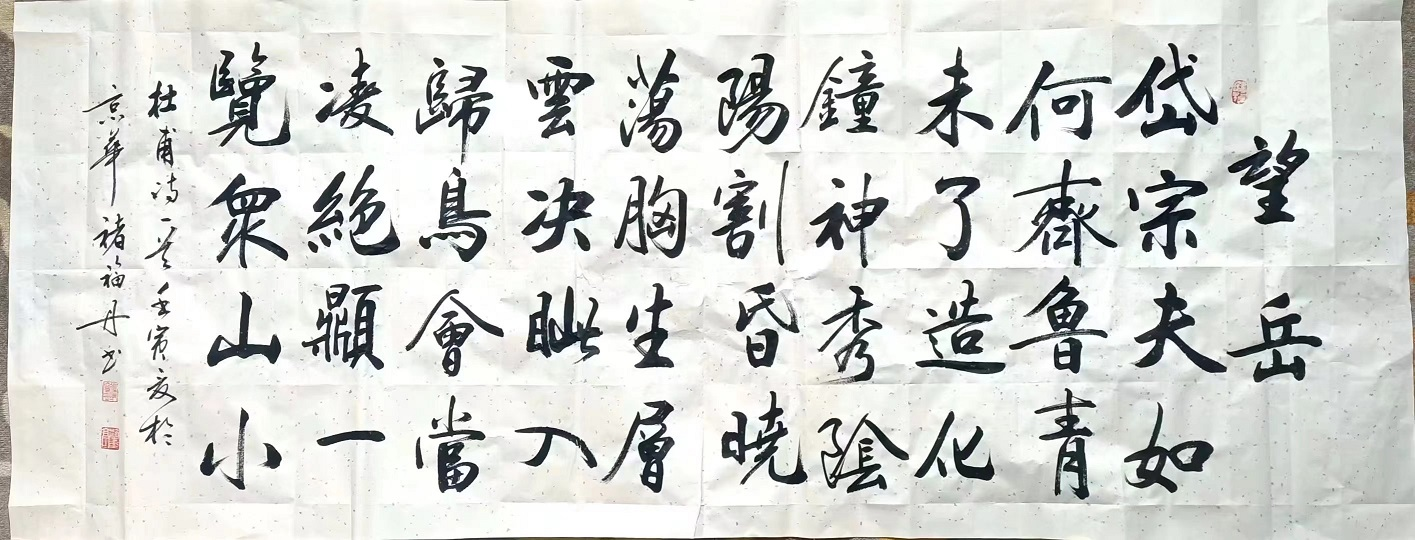 望岳
岱宗夫如
何齊魯青
未了造化
鐘神秀陰
陽割昏曉
蕩胸生層
雲决眦入
歸鳥會當
凌絕顚一
覽衆山小
杜甫诗一首壬寅夏於
京華褚福丹书